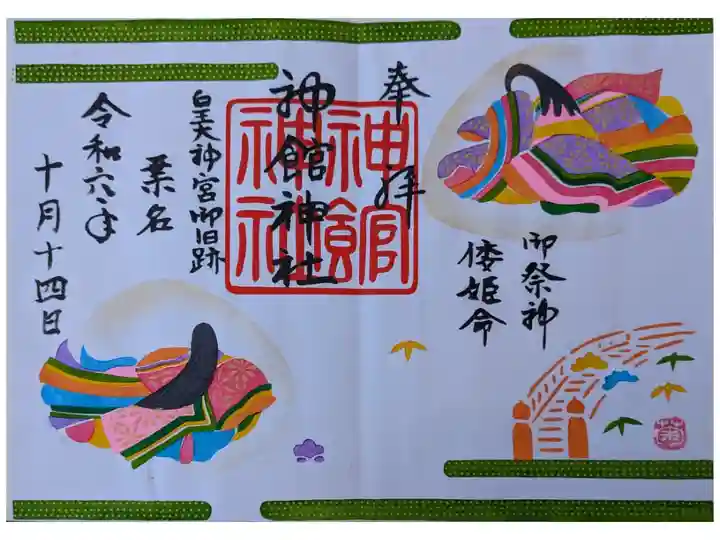 奉拝
御祭神
倭姫命
神館神社
神館
神社
皇大神宮御旧跡
桑名
令和六年
十月十四日